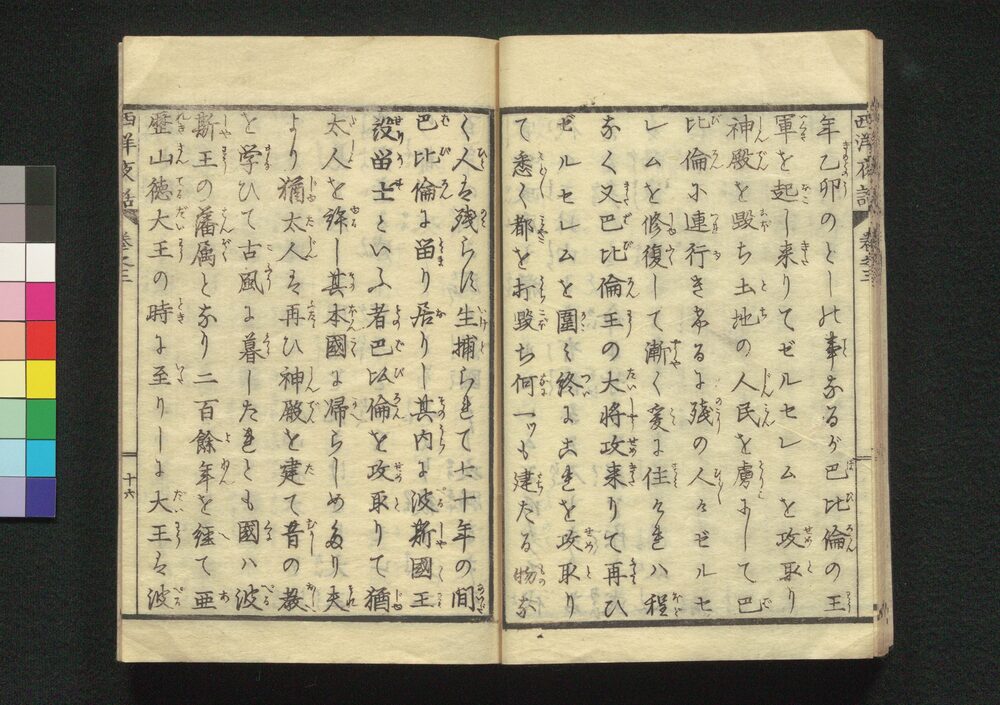 西洋夜話 巻之三
年乙卯のとしの事なるが巴比倫の王
軍を起し来りてゼルセレムを攻取り
神殿を毀ち土地の人民を虜にして巴
比倫に連行き希るに残の人々ゼルセ
レムを修復して漸く爰に住ければ程
なく又巴比倫王の大将攻来りて再ひ
ゼルセレムを圍ミ終に是を攻取り
て悉く都を打毀ち何一ッも建たる物な
く人を残らず生捕られて七十年の間
巴比倫に留り居りし其内に波斯國王
没留士といふ者巴比倫を攻取りて猶
太人を許し其本國に帰らしめたり夫
より猶太人は再ひ神殿を建て昔の教
を学ひて古風に暮したれとも國ハ波
斯王の藩属となり二百餘年を経て亜
歴山徳大王の時に至りしに大王は波
西洋夜話 巻之三 十六